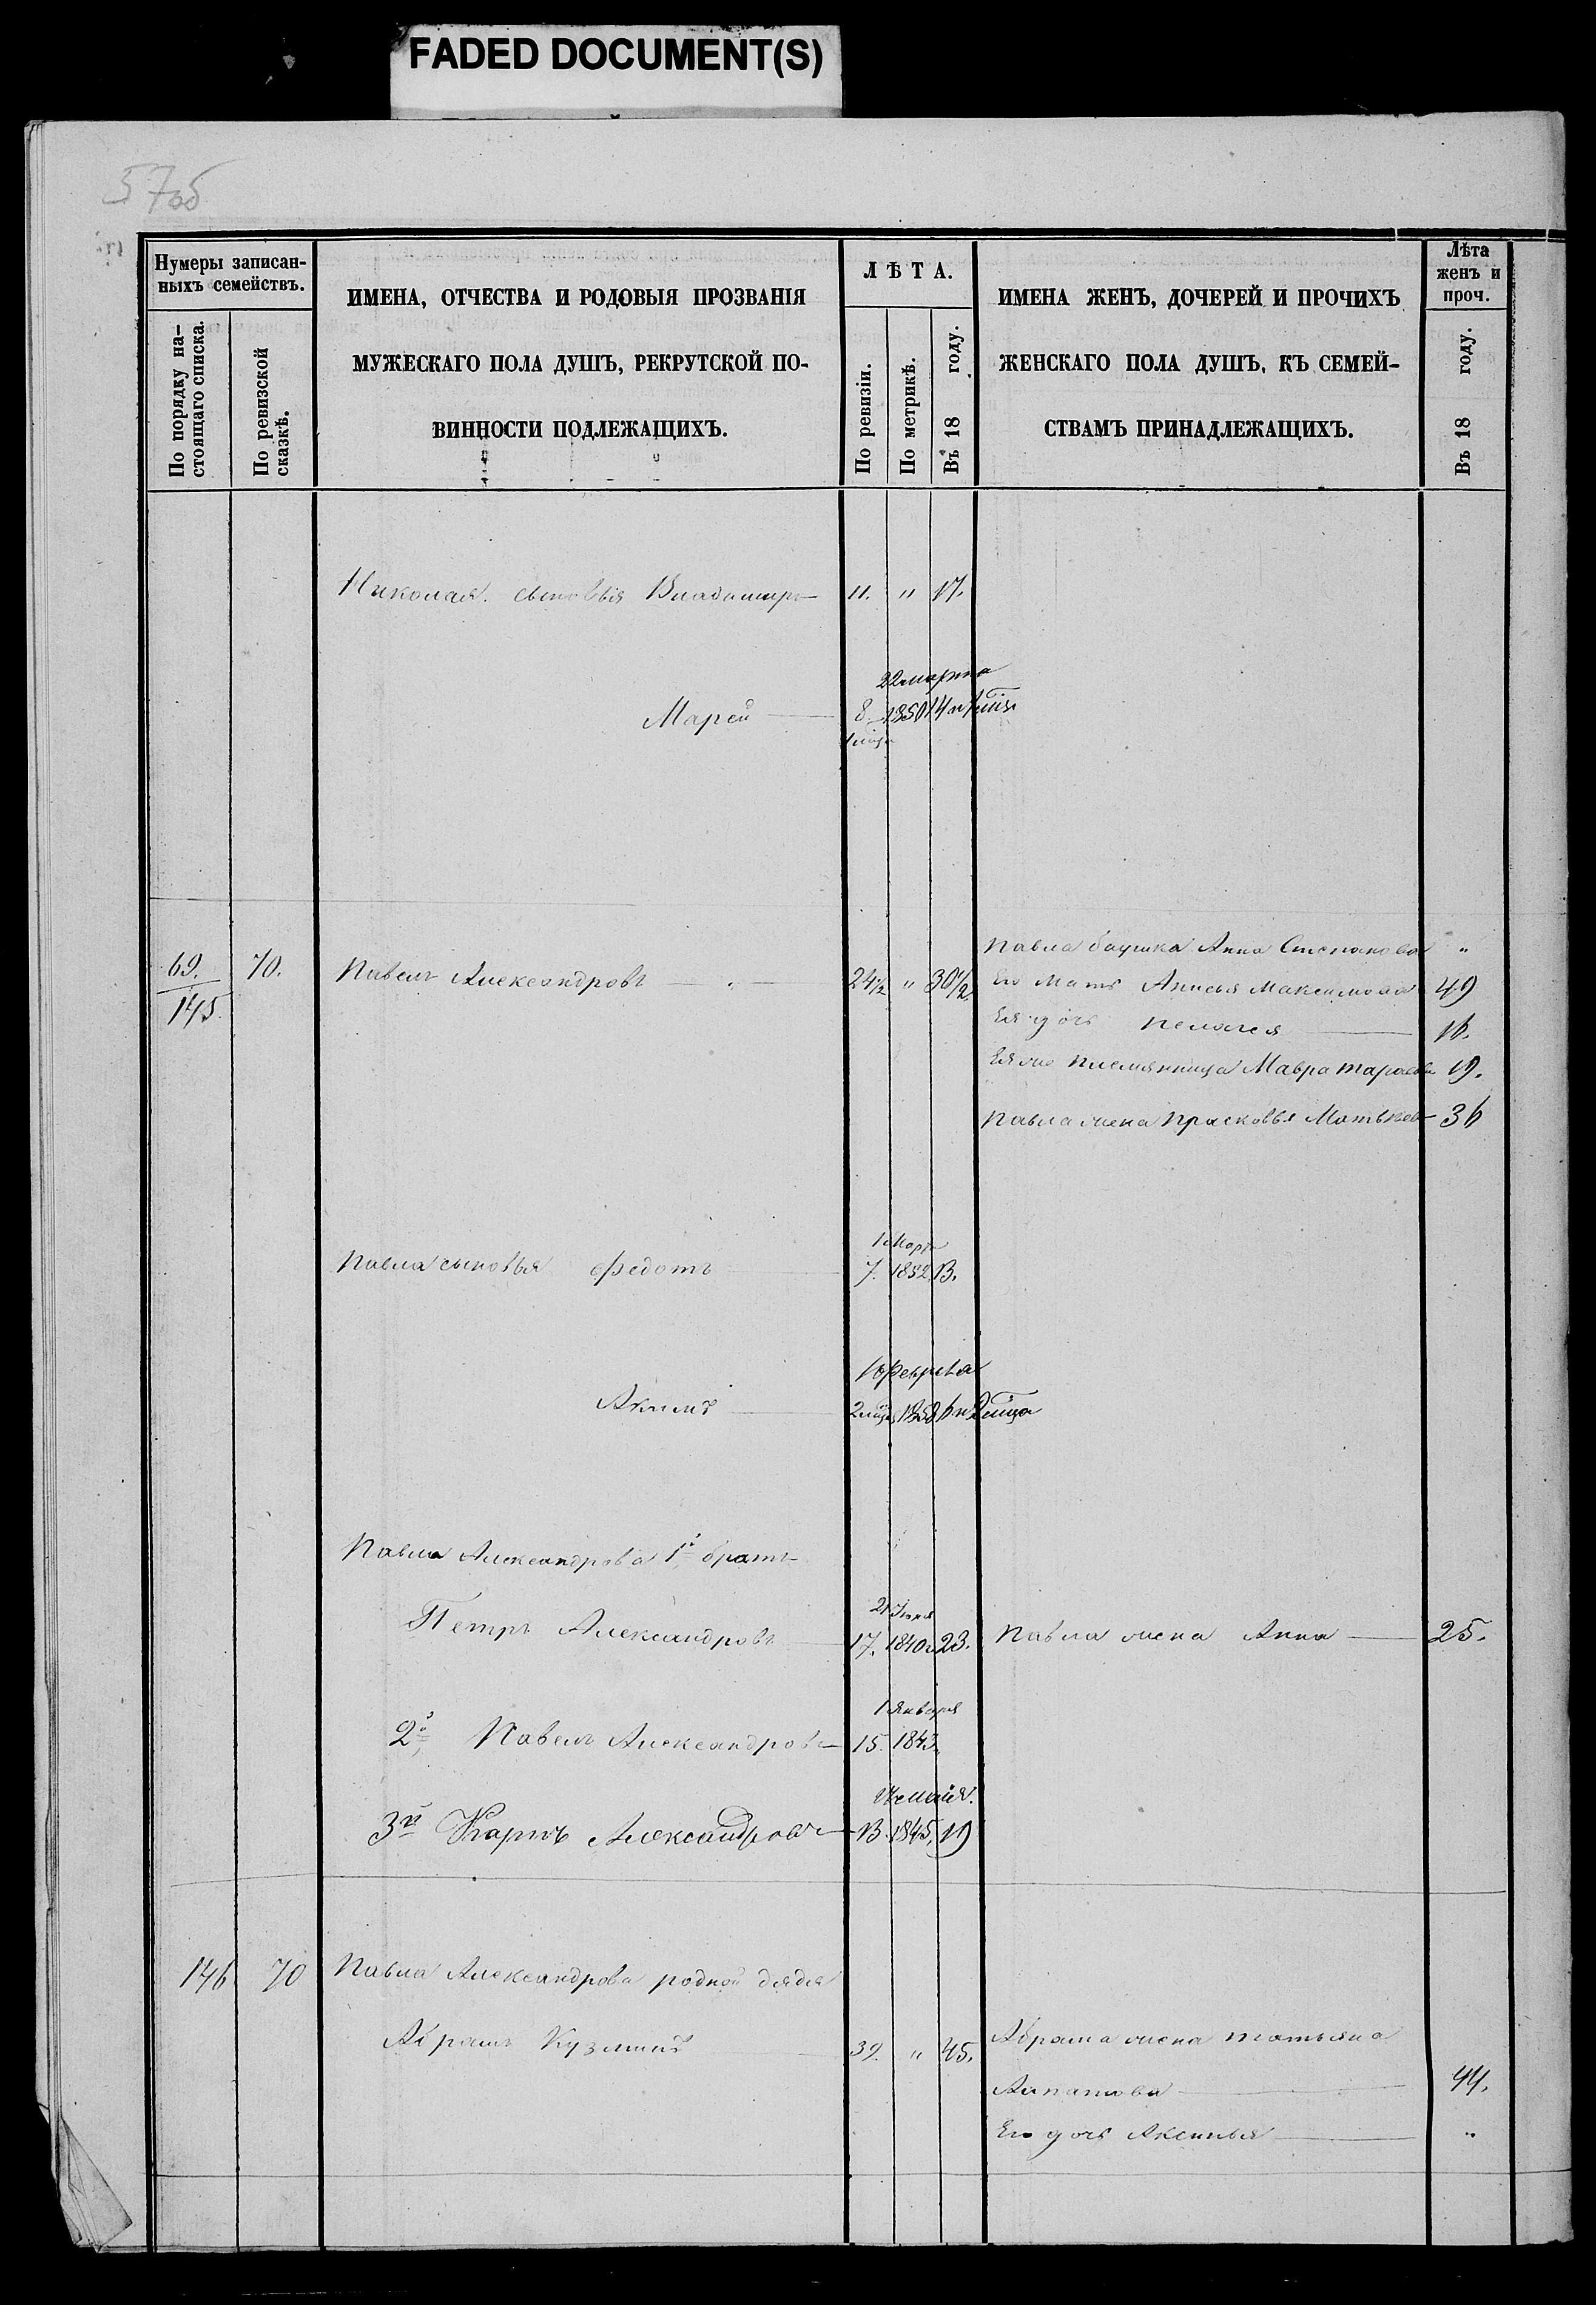 FADED DOCUMENT(S)
57об
Нумеры записан-
ныхъ семействъ.
По порядку на-
стоящаго списка.
По ревизской
сказкѣ.
ИМЕНА, ОТЧЕСТВА И РОДОВЫЯ ПРОЗВАНІЯ
МУЖЕСКАГО ПОЛА ДУШЪ, РЕКРУТСКОЙ ПО-
ВИННОСТИ ПОДЛЕЖАЩИХЪ.
ЛѢТА.
По ревизіи.
По метрикѣ.
Въ 18 году.
ИМЕНА ЖЕНЪ, ДОЧЕРЕЙ И ПРОЧИХЪ
ЖЕНСКАГО ПОЛА ДУШЪ, КЪ СЕМЕЙ-
СТВАМЪ ПРИНАДЛЕЖАЩИХЪ.
Лѣта
женъ и
проч.
Въ 18 году.
Николая сыновья Владимиръ 11. " 17.
22 марта
Марей 8 1850 14
69. 70. Павелъ Александровъ 24 1/2 " 30 1/2
145.
Павла баушка Анна Степанова "
Его мать Анисья Максимова 49
Ея дочь Пелагея 16.
Ея же племянница Мавра Тарасова 19.
Павла жена Прасковья Матвѣева 36
1 Марта
Павла сыновья Федотъ 7. 1852. 13.
Февраля
Акимъ 2 1858 6 и 2 мца
Павла Александрова 1й братъ
21 Іюня
Петръ Александровъ 17. 1840 23. Павла жена Анна 25.
1 Января
2й Павелъ Александровъ 15. 1843
Мая
3й Карпъ Александровъ 13. 1845. 19
146 70 Павла Александрова родной дядя
Абрамъ Кузминъ 39. " 45.
Абрама жена Татьяна
44.
Его дочь Аксинья "